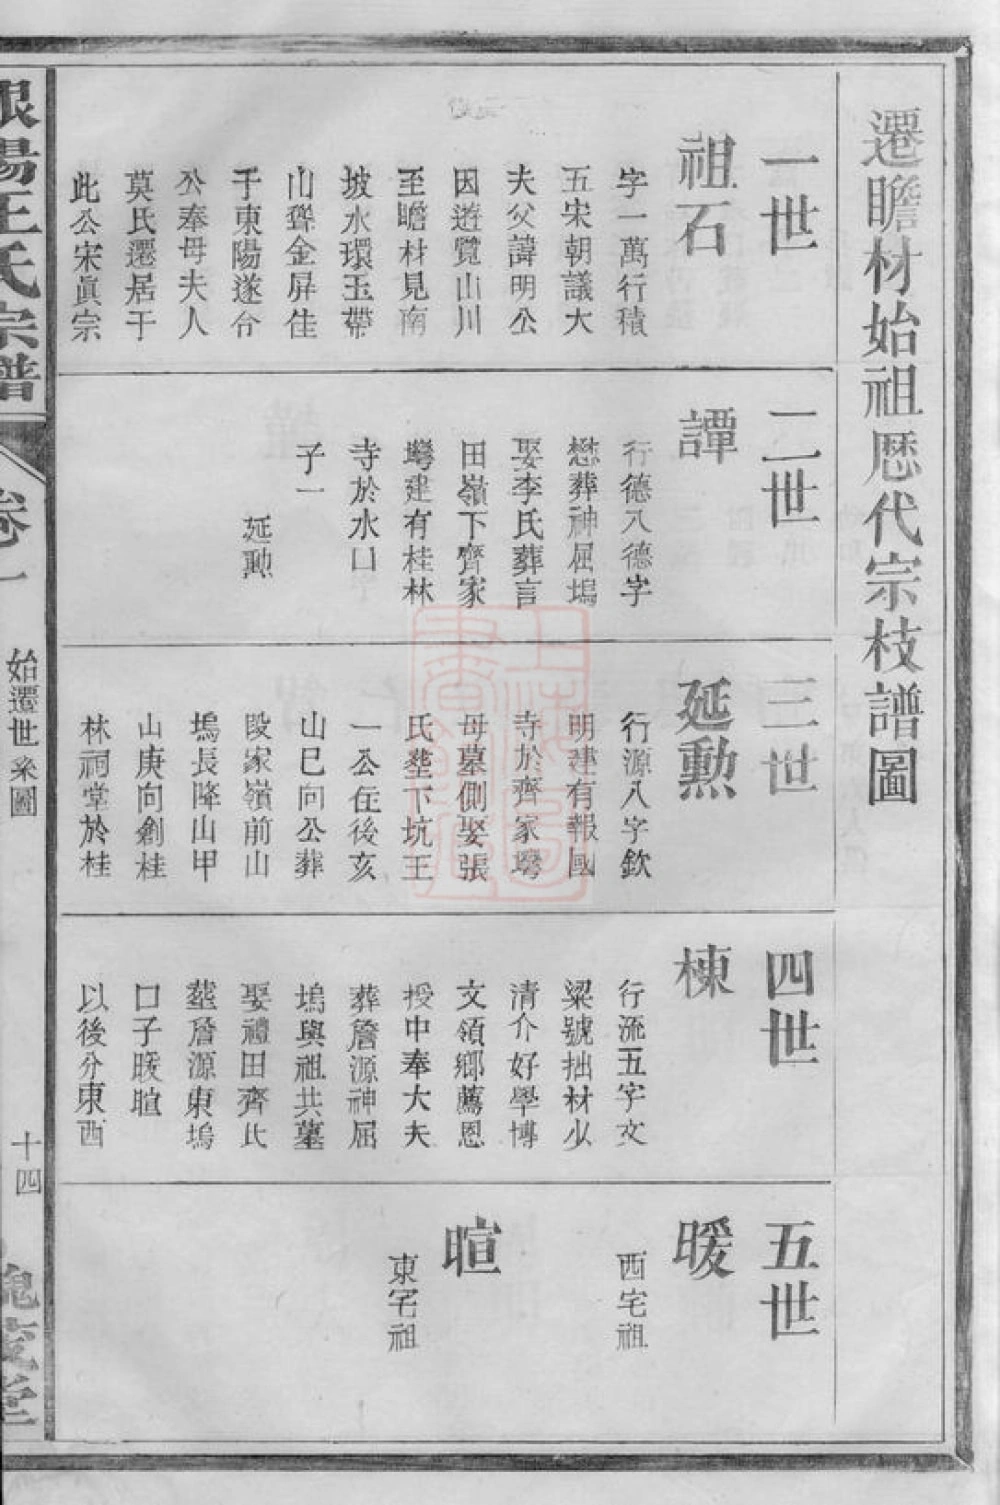 遷瞻材始祖歷代宗枝譜圖
一世
祖石
字一萬行積
五宋朝議大
夫父諱明公
因遊覽山川
至瞻材見南
坡水環玉帶
山聳金屏佳
于東陽遂令
公奉母夫人
莫氏遷居于
此公宋眞宗
二世
譚
行德八德字
懋葬神屈塢
娶李氏葬言
田嶺下齊家
塆建有桂林
寺於水口
子一
延勲
三世
延勲
行源八字欽
明建有報國
寺於齊家塆
母墓側娶張
氏塟下坑王
一公住後亥
山巳向公葬
段家嶺前山
塢長降山甲
山庚向創桂
林祠堂於桂
四世
棟
行流五字文
梁號拙材少
清介好學博
文領鄉薦恩
授中奉大夫
葬詹源神屈
塢與祖共墓
娶禮田齊氏
塟詹源東塢
口子暖暄
以後分東西
五世
暖
西宅祖
暄
東宅祖
陽王氏宗譜
卷一
始遷世系圖
十四